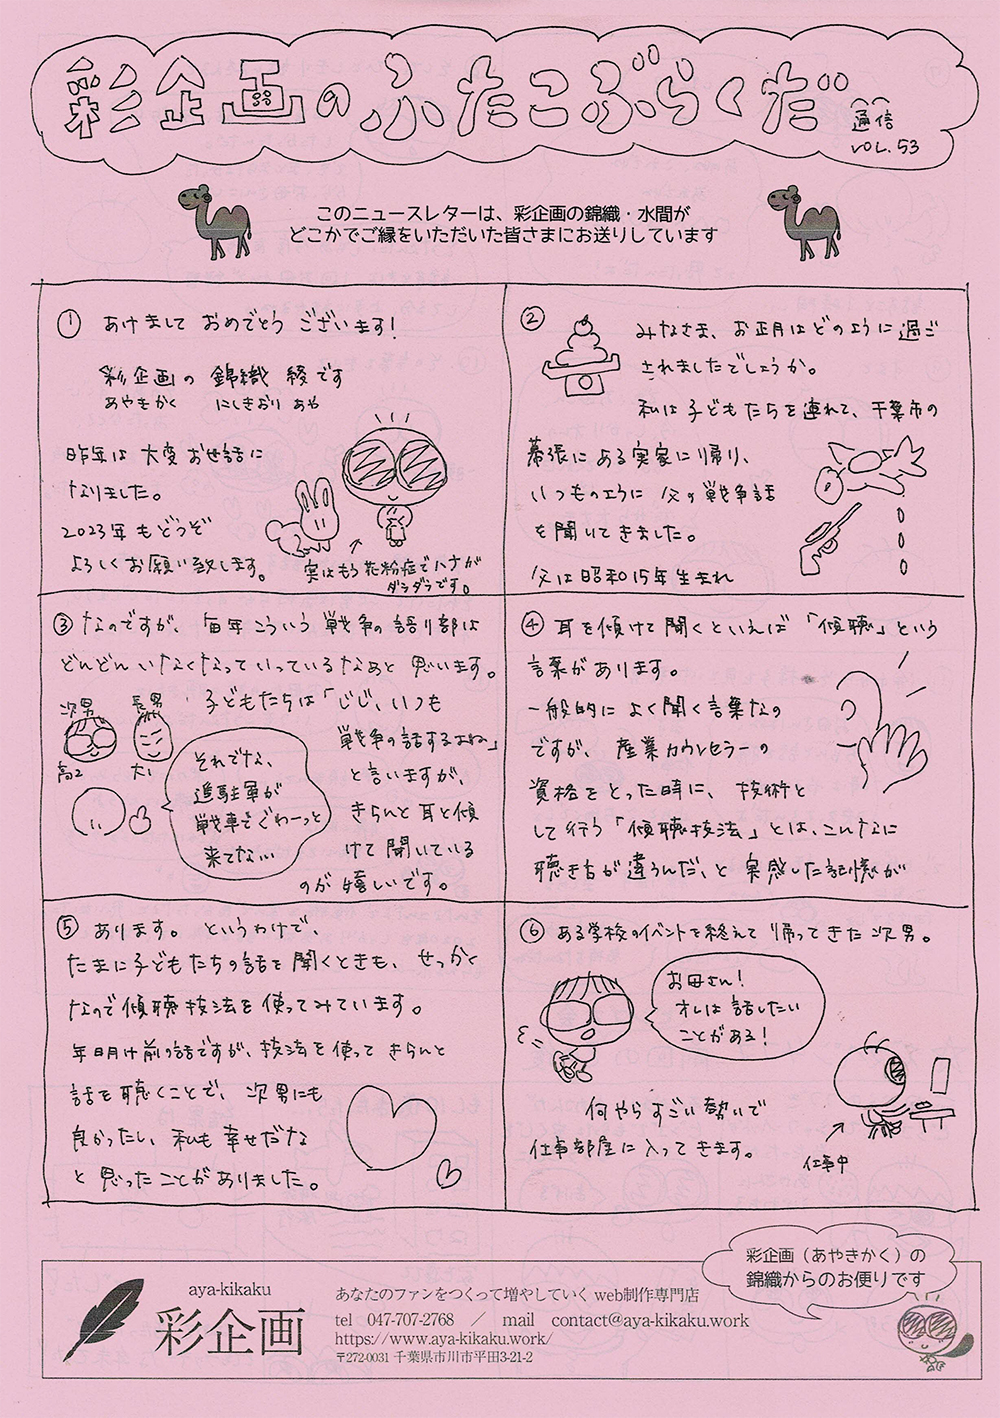 彩企画のふたこぶらくだ
通信
VOL.53
このニュースレターは、彩企画の錦織・水間が
どこかでご縁をいただいた皆さまにお送りしています
① あけまして おめでとう ございます!
彩企画の 錦織 綾です
あやきかく にしきおり あや
昨年は 大変 お世話に
なりました。
2023年もどうぞ
よろしくお願い致します。
実はもう花粉症でハナが
ダラダラです。
② みなさま、お正月はどのように過ご
されましたでしょうか。
私は子どもたちを連れて、千葉市の
幕張にある実家に帰り、
いつものように 父の戦争話
を聞いてきました。
父は昭和15年生まれ
③ なのですが、毎年こういう 戦争の語り部は
どんどん いなくなっていっているなぁと 思います。
子どもたちは「じじ、いつも
戦争の話するよね」
と言いますが、
きちんと耳を傾
けて聞いている
のが嬉しいです。
次男
長男
高2
大1
それでな、
進駐軍が
戦車でぐわーっと
来てな…
④ 耳を傾けて聞くといえば「傾聴」という
言葉があります。
一般的によく聞く言葉なの
ですが、産業カウンセラーの
資格をとった時に、技術と
して行う「傾聴技法」とは、こんなに
聴き方が違うんだ、と実感した記憶が
⑤ あります。というわけで、
たまに子どもたちの話を聞くときも、せっかく
なので傾聴技法を使ってみています。
年明け前の話ですが、技法を使って きちんと
話を聴くことで、次男にも
良かったし、私も幸せだな
と思ったことがありました。
⑥ ある学校のイベントを終えて帰ってきた次男。
お母さん!
オレは話したい
ことがある!
何やらすごい勢いで
仕事部屋に入ってきます。
仕事中
彩企画(あやきかく)の
錦織からのお便りです
aya-kikaku
彩企画
あなたのファンをつくって増やしていく web制作専門店
tel 047-707-2768 / mail contact@aya-kikaku.work
https://www.aya-kikaku.work/
〒272-0031 千葉県市川市平田3-21-2